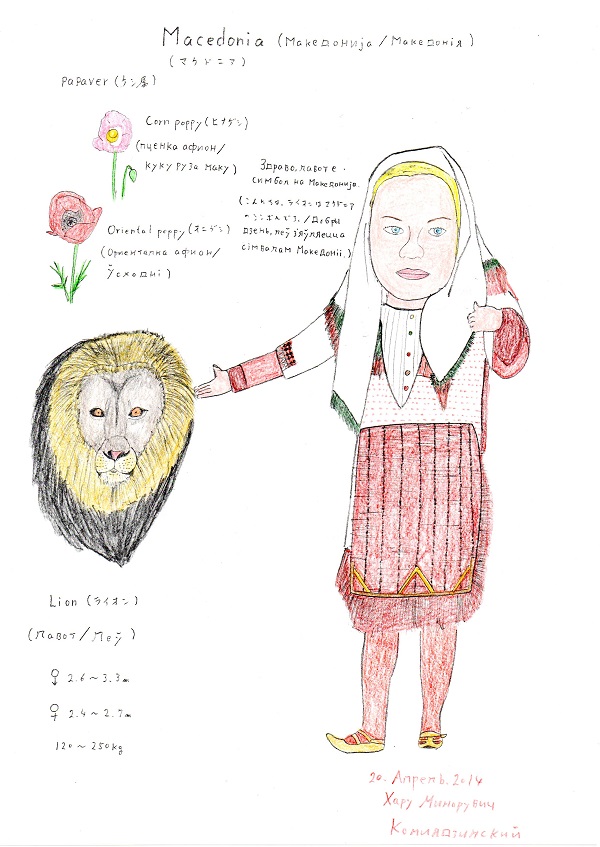 Macedonia (Македонија/Македонія)
(マケドニア)
Papaver (ケシ属)
Corn poppy (ヒナゲシ)
(пченка афион/
кукуруза маку)
Oriental poppy (オニゲシ)
(Ориентална афион/
Ўсходні)
Здраво, лавот е
симбол на Македонија.
(こんにちは、ライオンはマケドニア
のシンボルです。/Добры
дзень, леў з'яўляецца
сімвалам Македоніі.)
Lion (ライオン)
(Лавот/Леў)
2.6～3.3m
2.4～2.7m
120～250kg
20. Апрель. 2014
Хару Минорувич